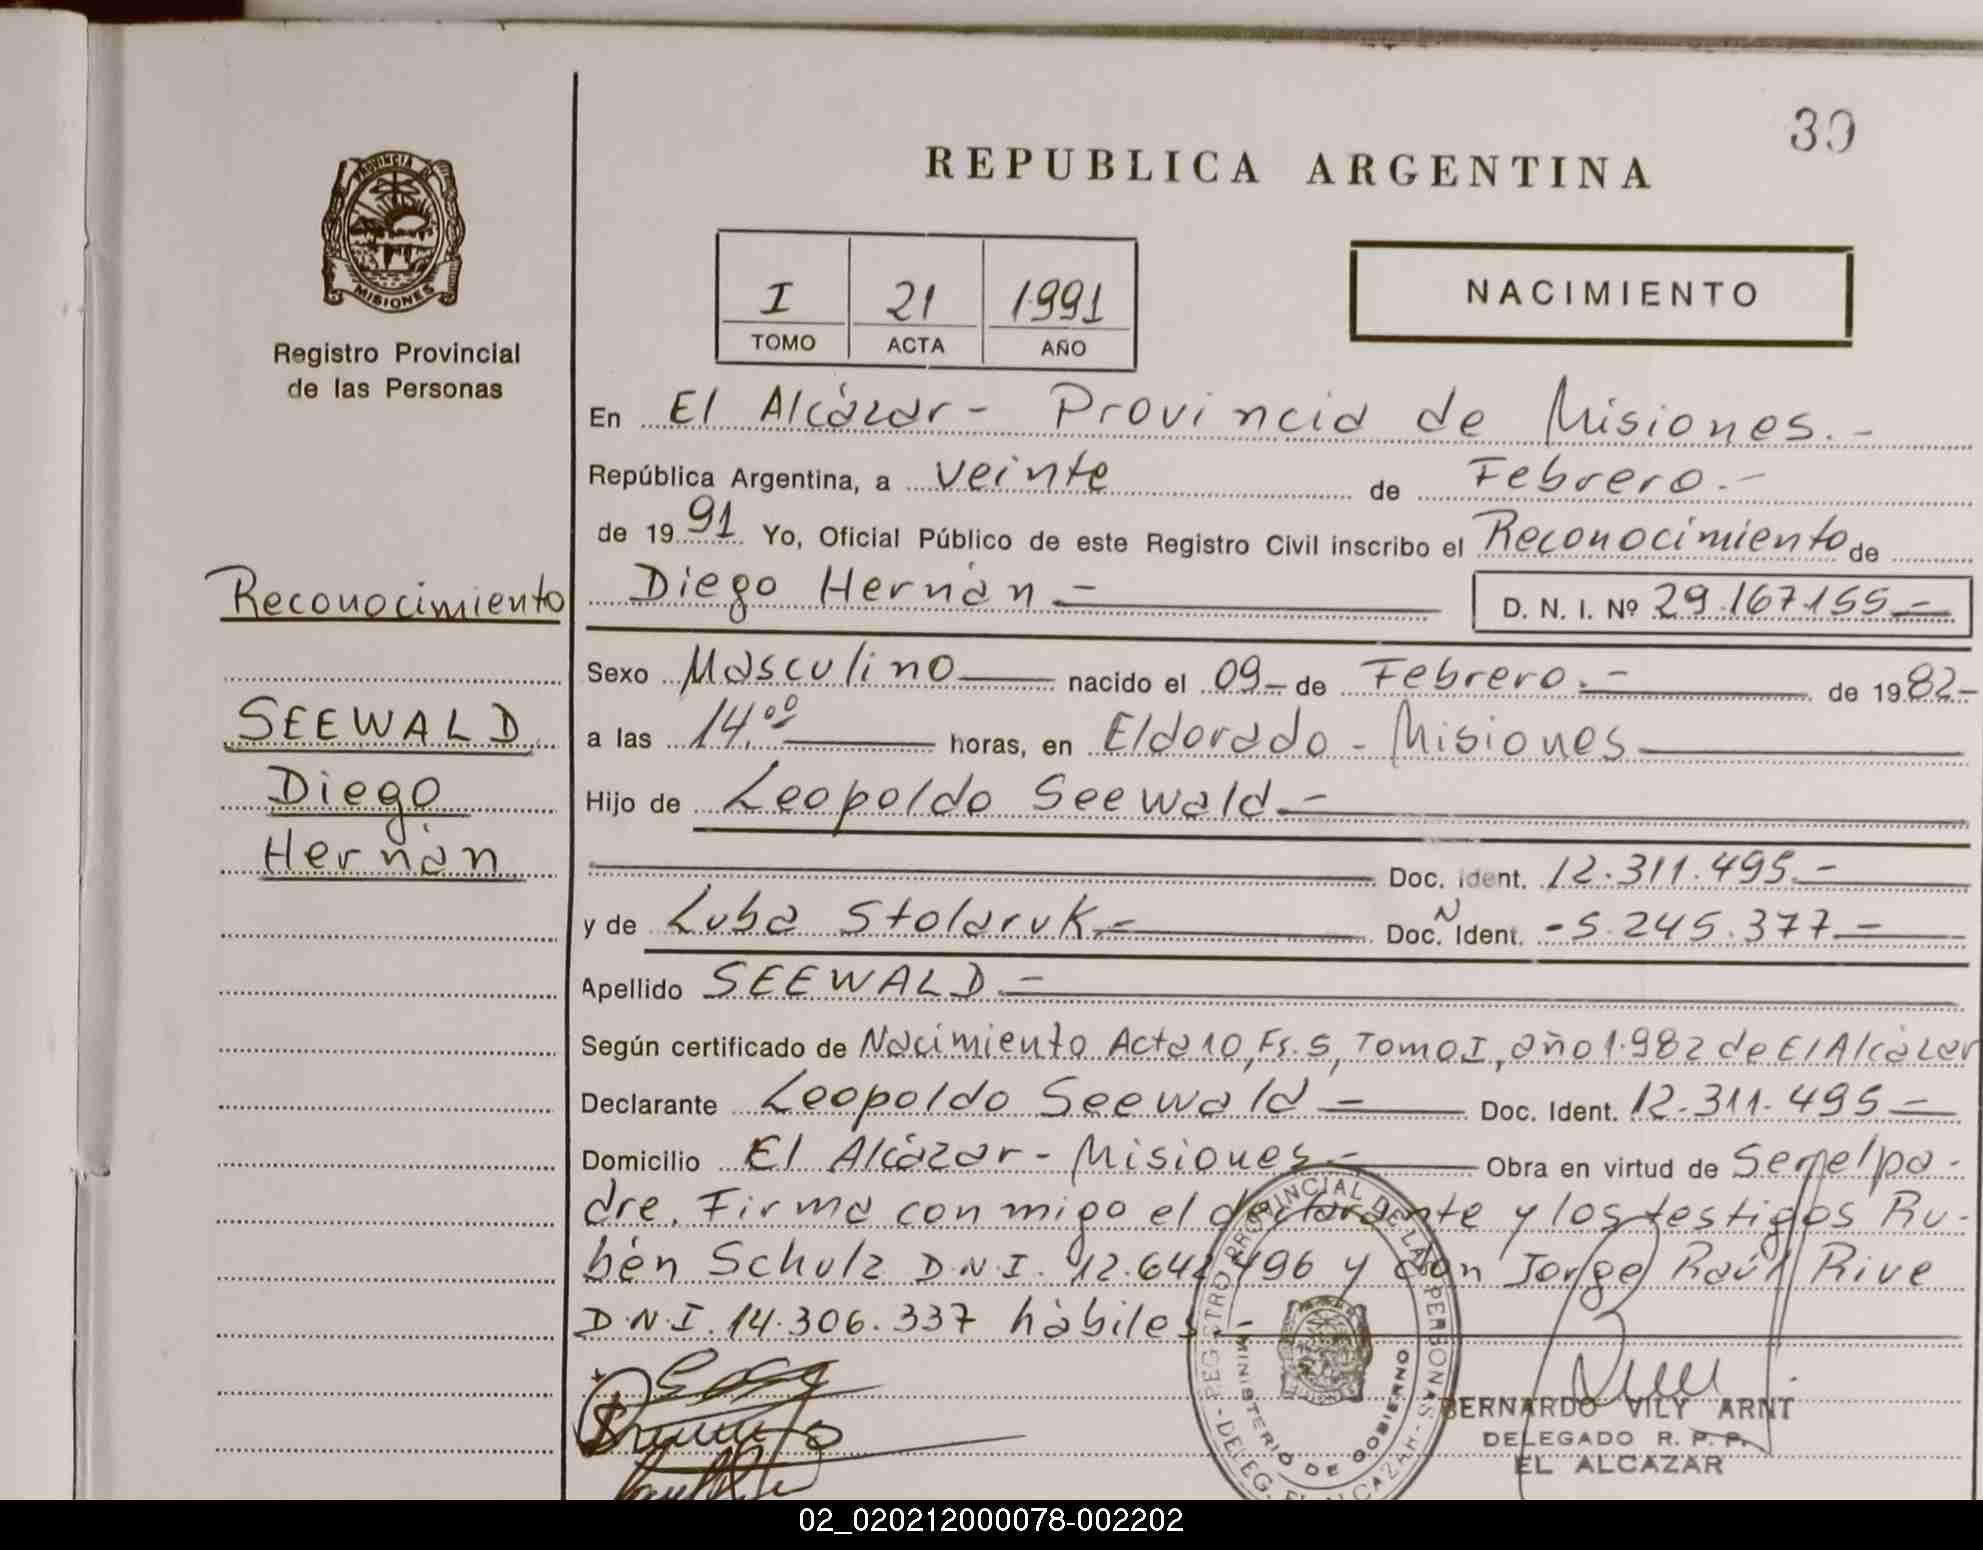 30
REPUBLICA ARGENTINA
PROVINCIA DE
MISIONES
Registro Provincial
de las Personas
I 21 1991
TOMO ACTA AÑO
NACIMIENTO
En El Alcázar - Provincia de Misiones.-
República Argentina, a veinte de Febrero.-
de 1991 Yo, Oficial Público de este Registro Civil inscribo el Reconocimiento de
Diego Hernán - D. N. I. Nº 29.167.155-
Sexo Masculino nacido el 09- de Febrero.- de 1982-
a las 14.00 horas, en Eldorado - Misiones
Hijo de Leopoldo Seewald.-
Doc. Ident. 12.311.495.-
y de Luba Stolaruk.- Doc. N Ident. -5.245.377.-
Apellido SEEWALD.-
Según certificado de Nacimiento Acta 10, Fs. 5, Tomo I, año 1.982 de El Alcázar
Declarante Leopoldo Seewald - Doc. Ident. 12.311.495-
Domicilio El Alcázar - Misiones.- Obra en virtud de Ser el pa-
dre. Firma con migo el declarante y los testigos Ru-
bén Schulz D.N.I. 12.642.496 y don Jorge Raúl Rive
D.N.I. 14.306.337 hábiles.-
Reconocimiento
SEEWALD
Diego
Hernán
REGISTRO PROVINCIAL DE LAS PERSONAS
- DELEG. EL ALCAZAR -
MINISTERIO DE GOBIERNO
BERNARDO VILY ARNT
DELEGADO R. P. P.
EL ALCAZAR
02_020212000078-002202